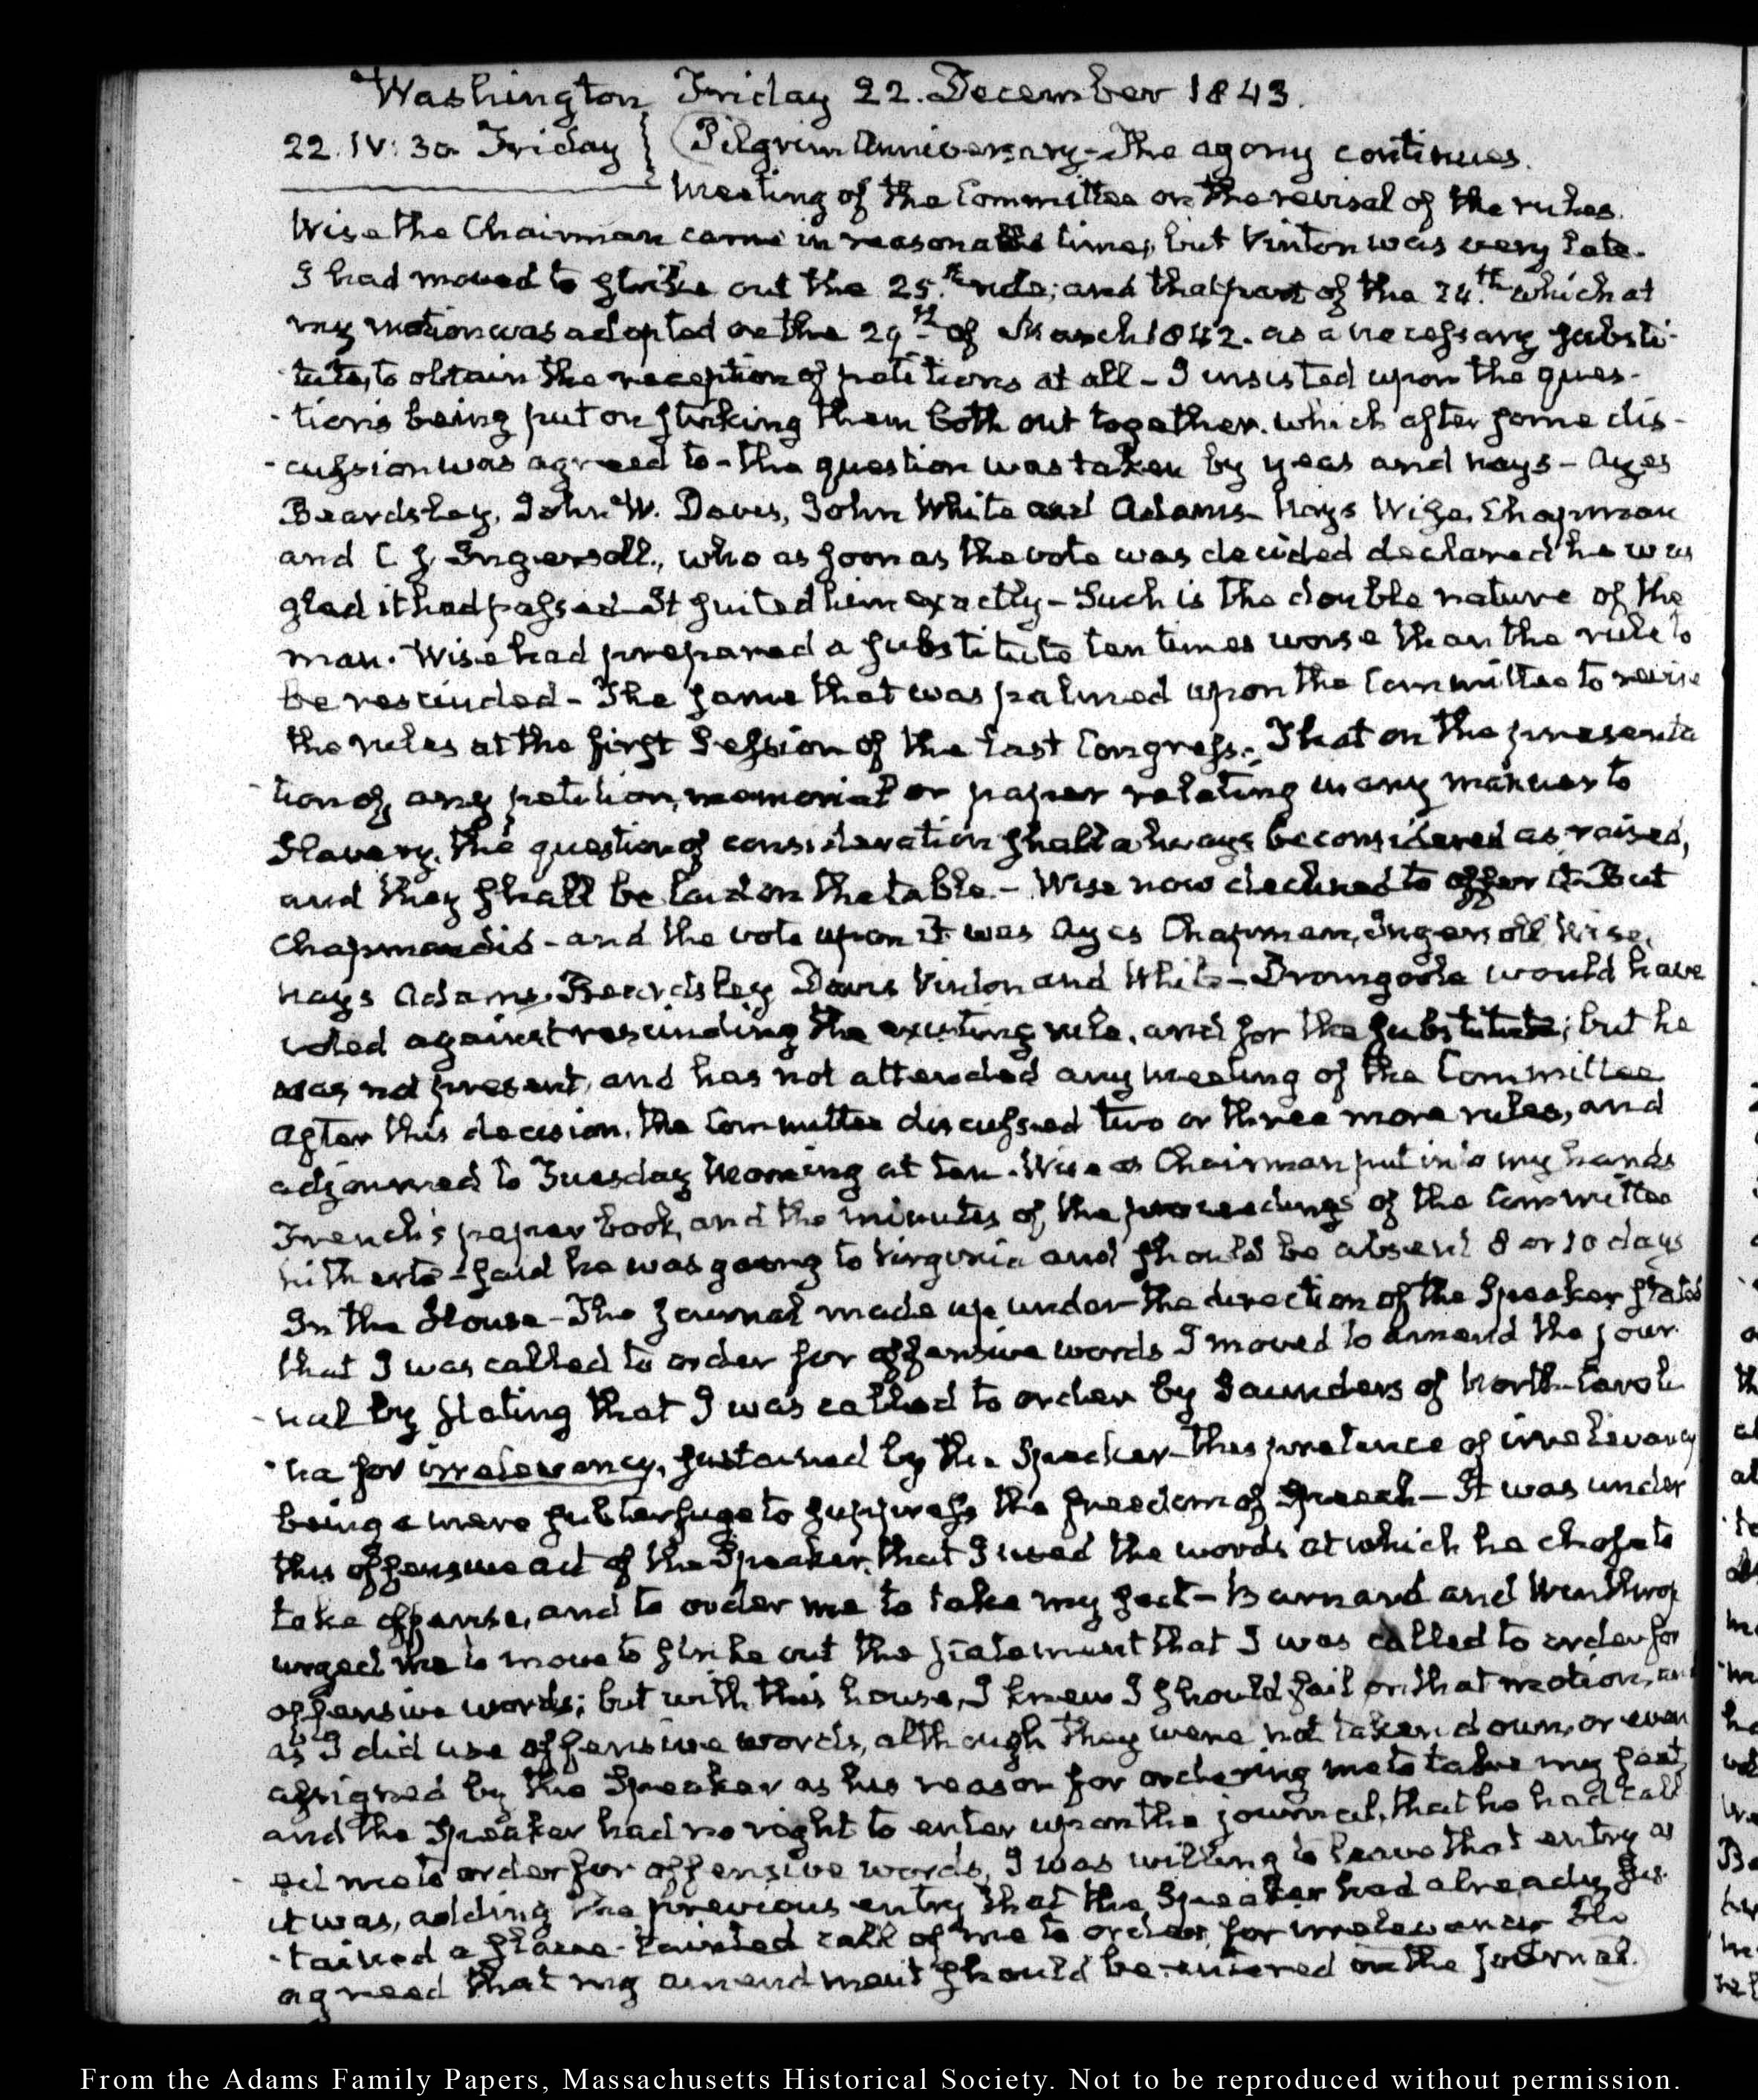 Washington Friday 22. December 1843.
22. IV: 30. Friday } Pilgrim Anniversary - The agony continues.
Meeting of the Committee on the revisal of the rules.
Wise the Chairman came in reasonable time, but Vinton was very late.
I had moved to strike out the 25.th rule; and that part of the 24.th which at
my motion was adopted on the 29th of March 1842. as a necessary substi-
tute, to obtain the reception of petitions at all - I insisted upon the ques-
-tions being put on striking them both out together. which after some dis-
-cussion was agreed to - the question was taken by yeas and nays - Ayes
Beardsley, John W. Davis, John White and Adams - Nays Wise, Chapman
and C J. Ingersoll., who as soon as the vote was decided declared he was
glad it had passed - It suited him exactly - Such is the double nature of the
man. Wise had prepared a substitute ten times worse than the rule to
be rescinded - The same that was palmed upon the Committee to revise
the rules at the first Session of the last Congress. That on the presenta
-tion of, any petition, memorial or paper relating in any manner to
Slavery, the question of consideration shall always be considered as raised,
and they shall be laid on the table. - Wise now declined to offer it - But
Chapman did - and the vote upon it was Ayes Chapman, Ingersoll, Wise,
nays Adams, Beardsley Davis Vinton and White - Dromgoole would have
voted against rescinding the existing rule, and for the substitute; but he
was not present, and has not attended any meeting of the Committee
After this decision, the Committee discussed two or three more rules, and
adjourned to Tuesday Morning at ten. Wise as Chairman put into my hands
French's paper book, and the minutes of, the proceedings of the Committee
hitherto - said he was going to Virginia and should be absent 8 or 10 days
In the House - The Journal made up under the direction of the Speaker stated
that I was called to order for offensive words I moved to amend the jour
-nal by stating that I was called to order by Saunders of North-Caroli
-na for irrelevancy, sustained by the Speaker - This pretence of irrelevancy
being a mere subterfuge to suppress the freedom of Speech - It was under
this offensive act of the Speaker, that I used the words at which he chose to
take offense, and to order me to take my seat - Barnard and Winthrop
urged me to move to strike out the statement that I was called to order for
offensive words; but with this house, I knew I should fail on that motion, and
as I did use offensive words, although they were not taken down, or even
assigned by the Speaker as his reason for ordering me to take my seat,
and the Speaker had no right to enter upon the journal, that he had call
-ed me to order for offensive words, I was willing to leave that entry as
it was, adding the previous entry that the Speaker had already sus
-tained a call of me to order, for irrelevancy. He
agreed that my amendment should be entered on the Journal.
From the Adams Family Papers, Massachusetts Historical Society. Not to be reproduced without permission.